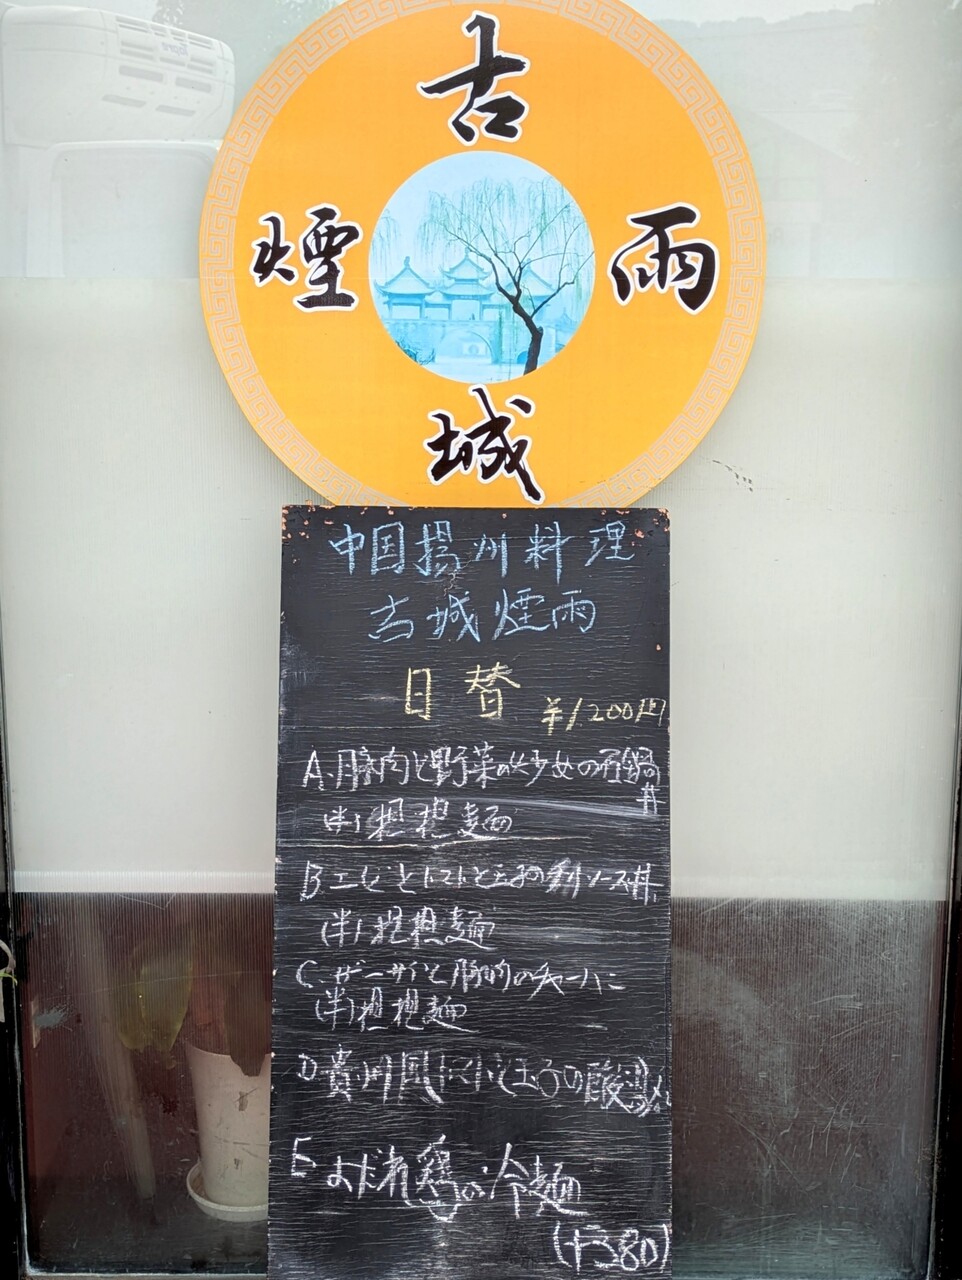 古
煙
雨
城
中国揚州料理
古城煙雨
日替
¥1200円
A.豚肉と野菜の炒めの石鍋
丼
(半)担担麺
B エビとトマトと玉子のチリソース丼
(半)担担麺
C.ザーサイと豚肉のチャーハン
(半)担担麺
D 貴州風トマトと玉子の酸湯
E よだれ鶏の冷麺
(+380)